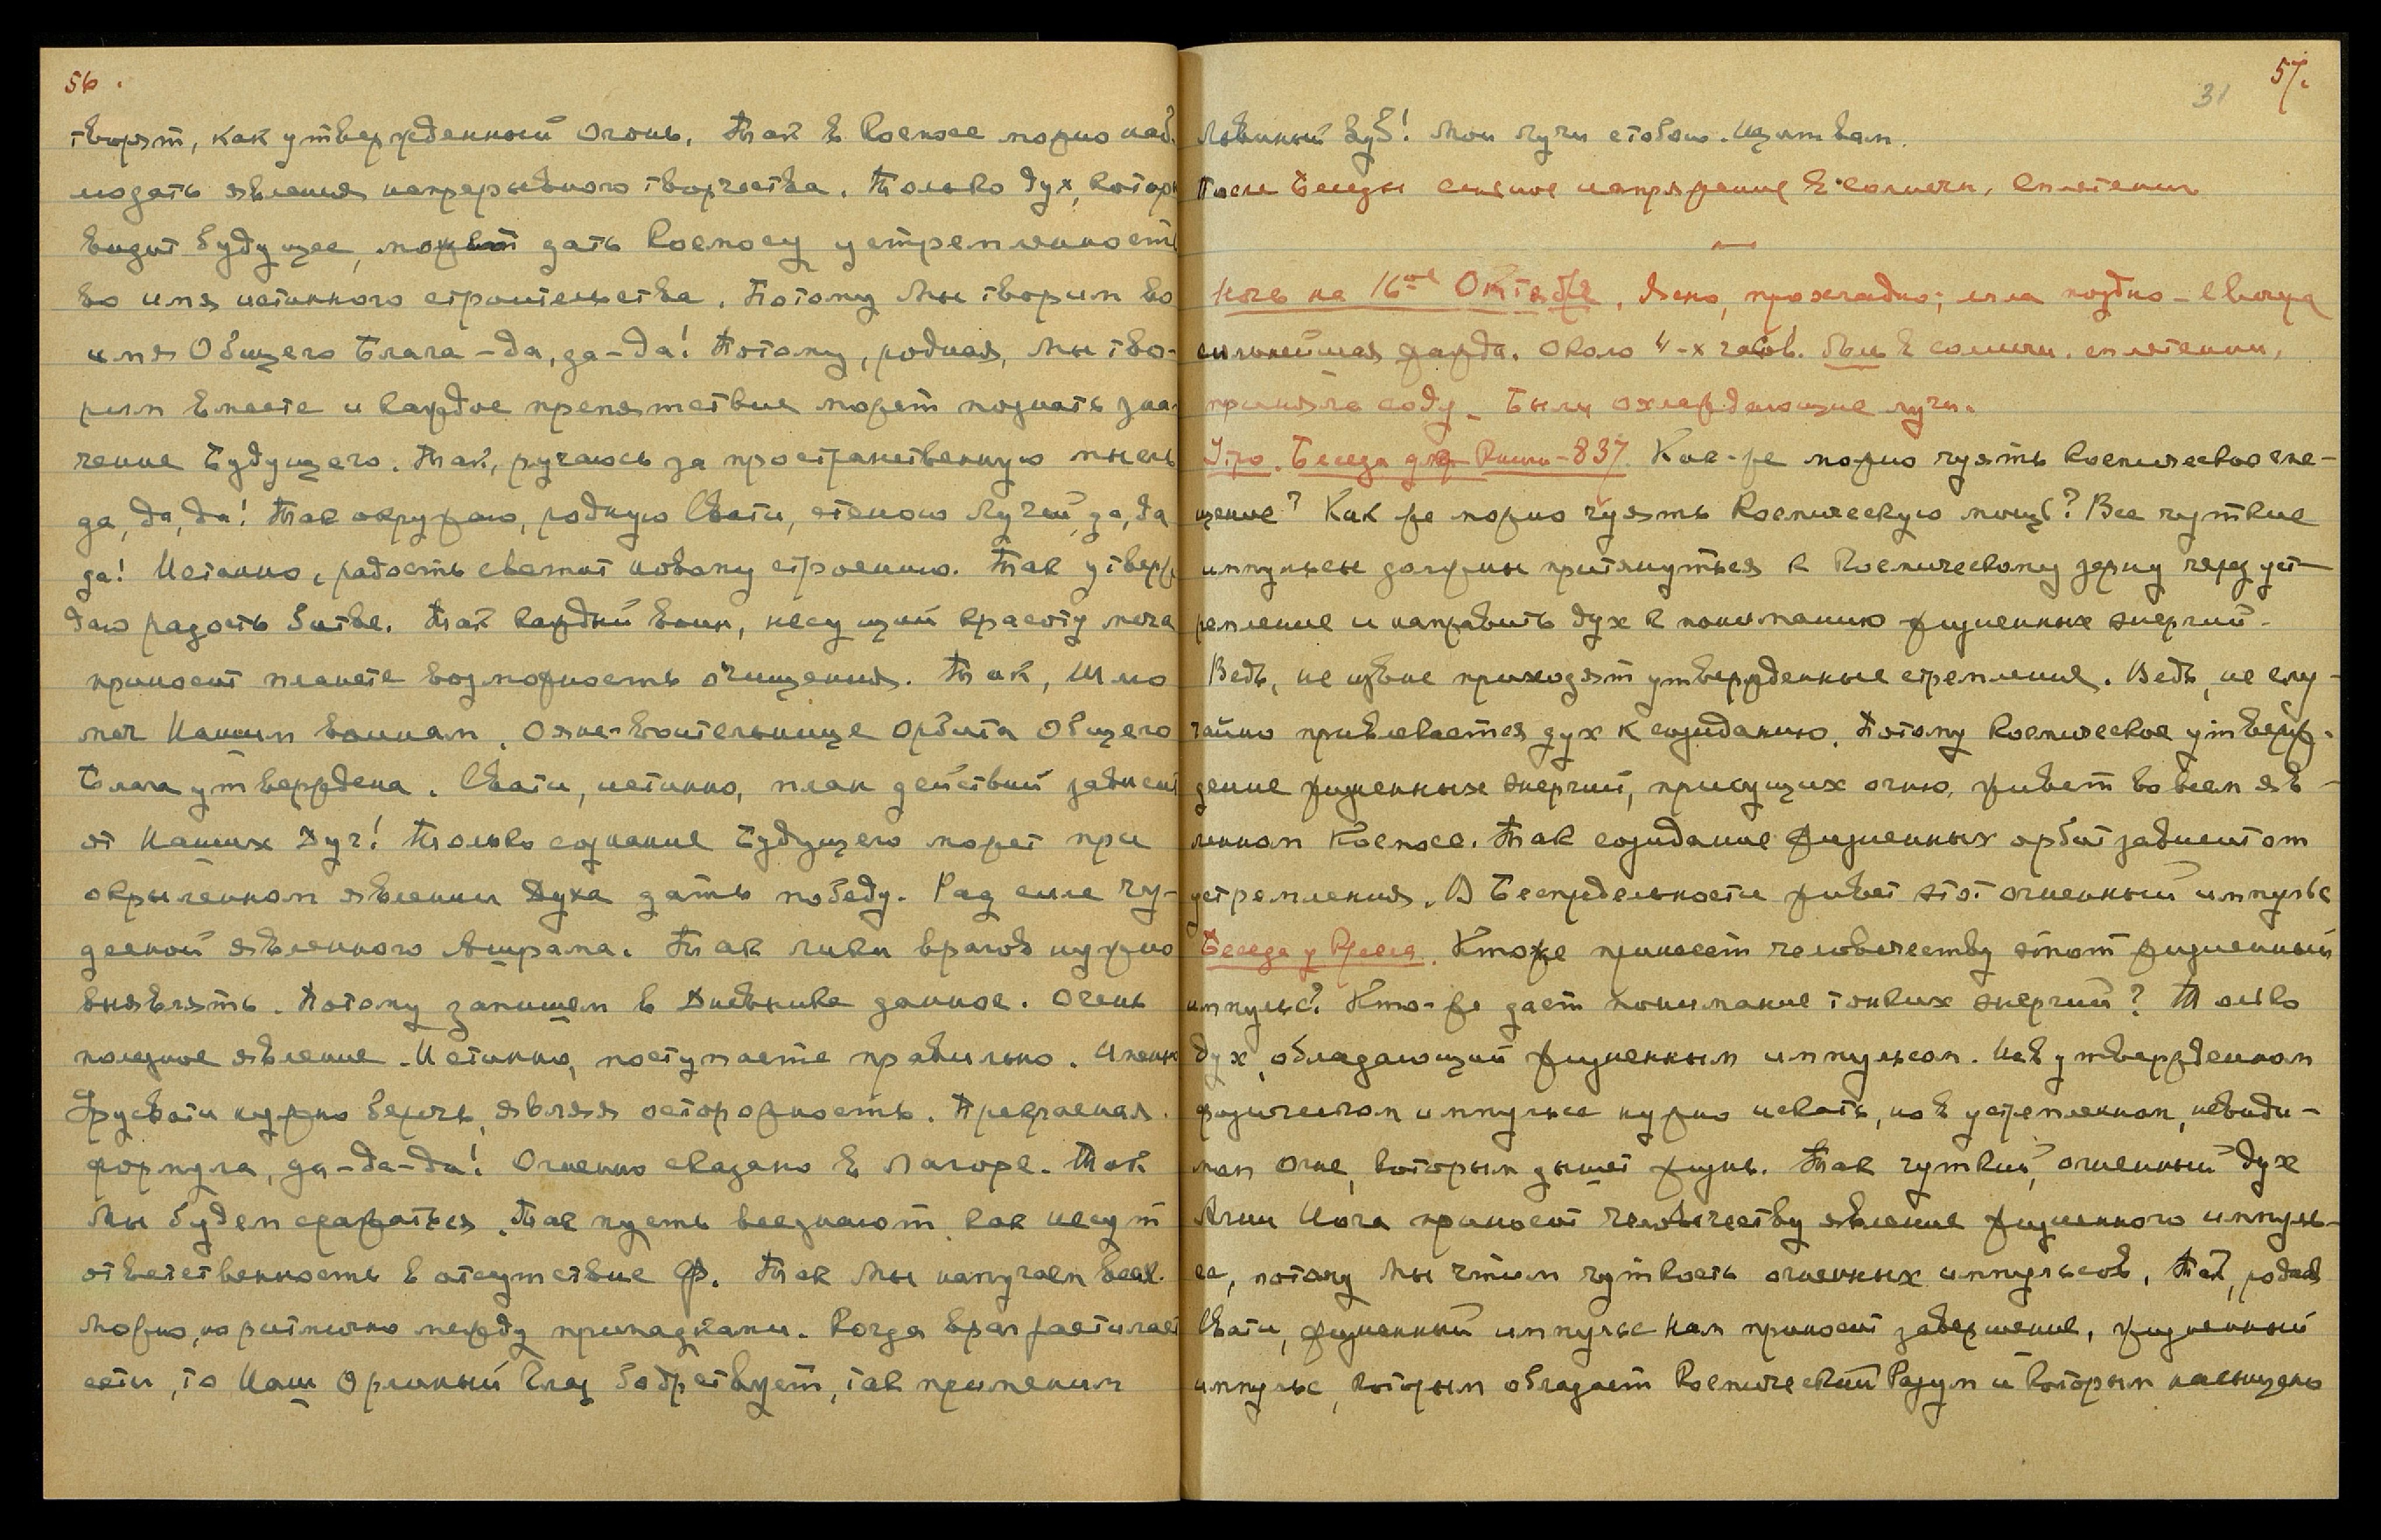 56.
творят, как утвержденный огонь. Так в Космосе можно наб-
людать явления непрерывного творчества. Только дух, котор
видит будущее, может дать Космосу устремленность
во имя истинного строительства. Потому Мы творим во
имя Общего Блага – да, да – да! Потому, родная, Мы тво-
рим вместе и каждое препятствие может познать зна-
чение Будущего. Так, ручаюсь за пространственную мысль
да, да, да! Так окружаю, родную Свати, стеною Лучей, да, да
да! Истинно, радость светит новому строению. Так утверж
даю радость битве. Так каждый воин, несущий красоту меча
приносит планете возможность очищения. Так, Шлю
меч Нашим воинам. Огне-воительнице орбита Общего
Блага утверждена. Свати, истинно, план действий зависит
от Наших Дум! Только сознание Будущего может при
окрыленном явлении Духа дать победу. Рад силе чу-
десной явленного Ашрама. Так лики врагов нужно
выявлять. Потому запишем в Дневнике данное. Очень
полезное явление. Истинно, поступаете правильно. Именно
Урусвати нужно беречь, являя осторожность. Прекрасная
формула, да – да – да! Огненно сказано в Лагоре. Так
Мы будем сражаться. Так пусть все знают, как несут
ответственность в отсутствие Ф. Так Мы научаем всех.
Можно, но ритмично между припадками. Когда враг расстилает
сети, то Наш Орлиный Глаз бодрствует, так применим
57.
31
Львиный Зуб! Мои Лучи с тобою. Щит вам.
После Беседы сильное напряжение в солнечн. сплетении
Ночь на 16-ое Октября. Ясно, прохладно; легла поздно – с вечера
сильнейшая жажда. Около 4-х часов. боль в солнечн. сплетении,
приняла соду – Были охлаждающие лучи.
Утро. Беседа для Книги – 837. Как-же можно чуять Космическое сме-
щение? Как же можно чуять Космическую мощь? Все чуткие
импульсы должны притянуться к Космическому зерну через уст-
ремление и направить дух к пониманию жизненных энергий.
Ведь, не извне приходят утвержденные стремления. Ведь, не слу-
чайно привлекается дух к созиданию. Потому Космическое утверж-
дение жизненных энергий, присущих огню, живет во всем яв-
ленном Космосе. Так созидание жизненных орбит зависит от
устремления. В Беспредельности живет этот огненный импульс
Беседа у Кресла. Кто же принесет человечеству этот жизненный
импульс? Кто-же дает понимание тонких энергий? Только
дух, обладающий жизненным импульсом. Не в утвержденном
физическом импульсе нужно искать, но в устремленном, невиди-
мом Огне, которым дышет жизнь. Так чуткий, огненный дух
Агни Йога приносит человечеству явление жизненного импуль-
са, потому Мы чтим чуткость огненных импульсов. Так, родная
Свати, жизненный импульс Нам приносит завершение, жизненный
импульс, которым обладает Космический Разум и которым насыщено